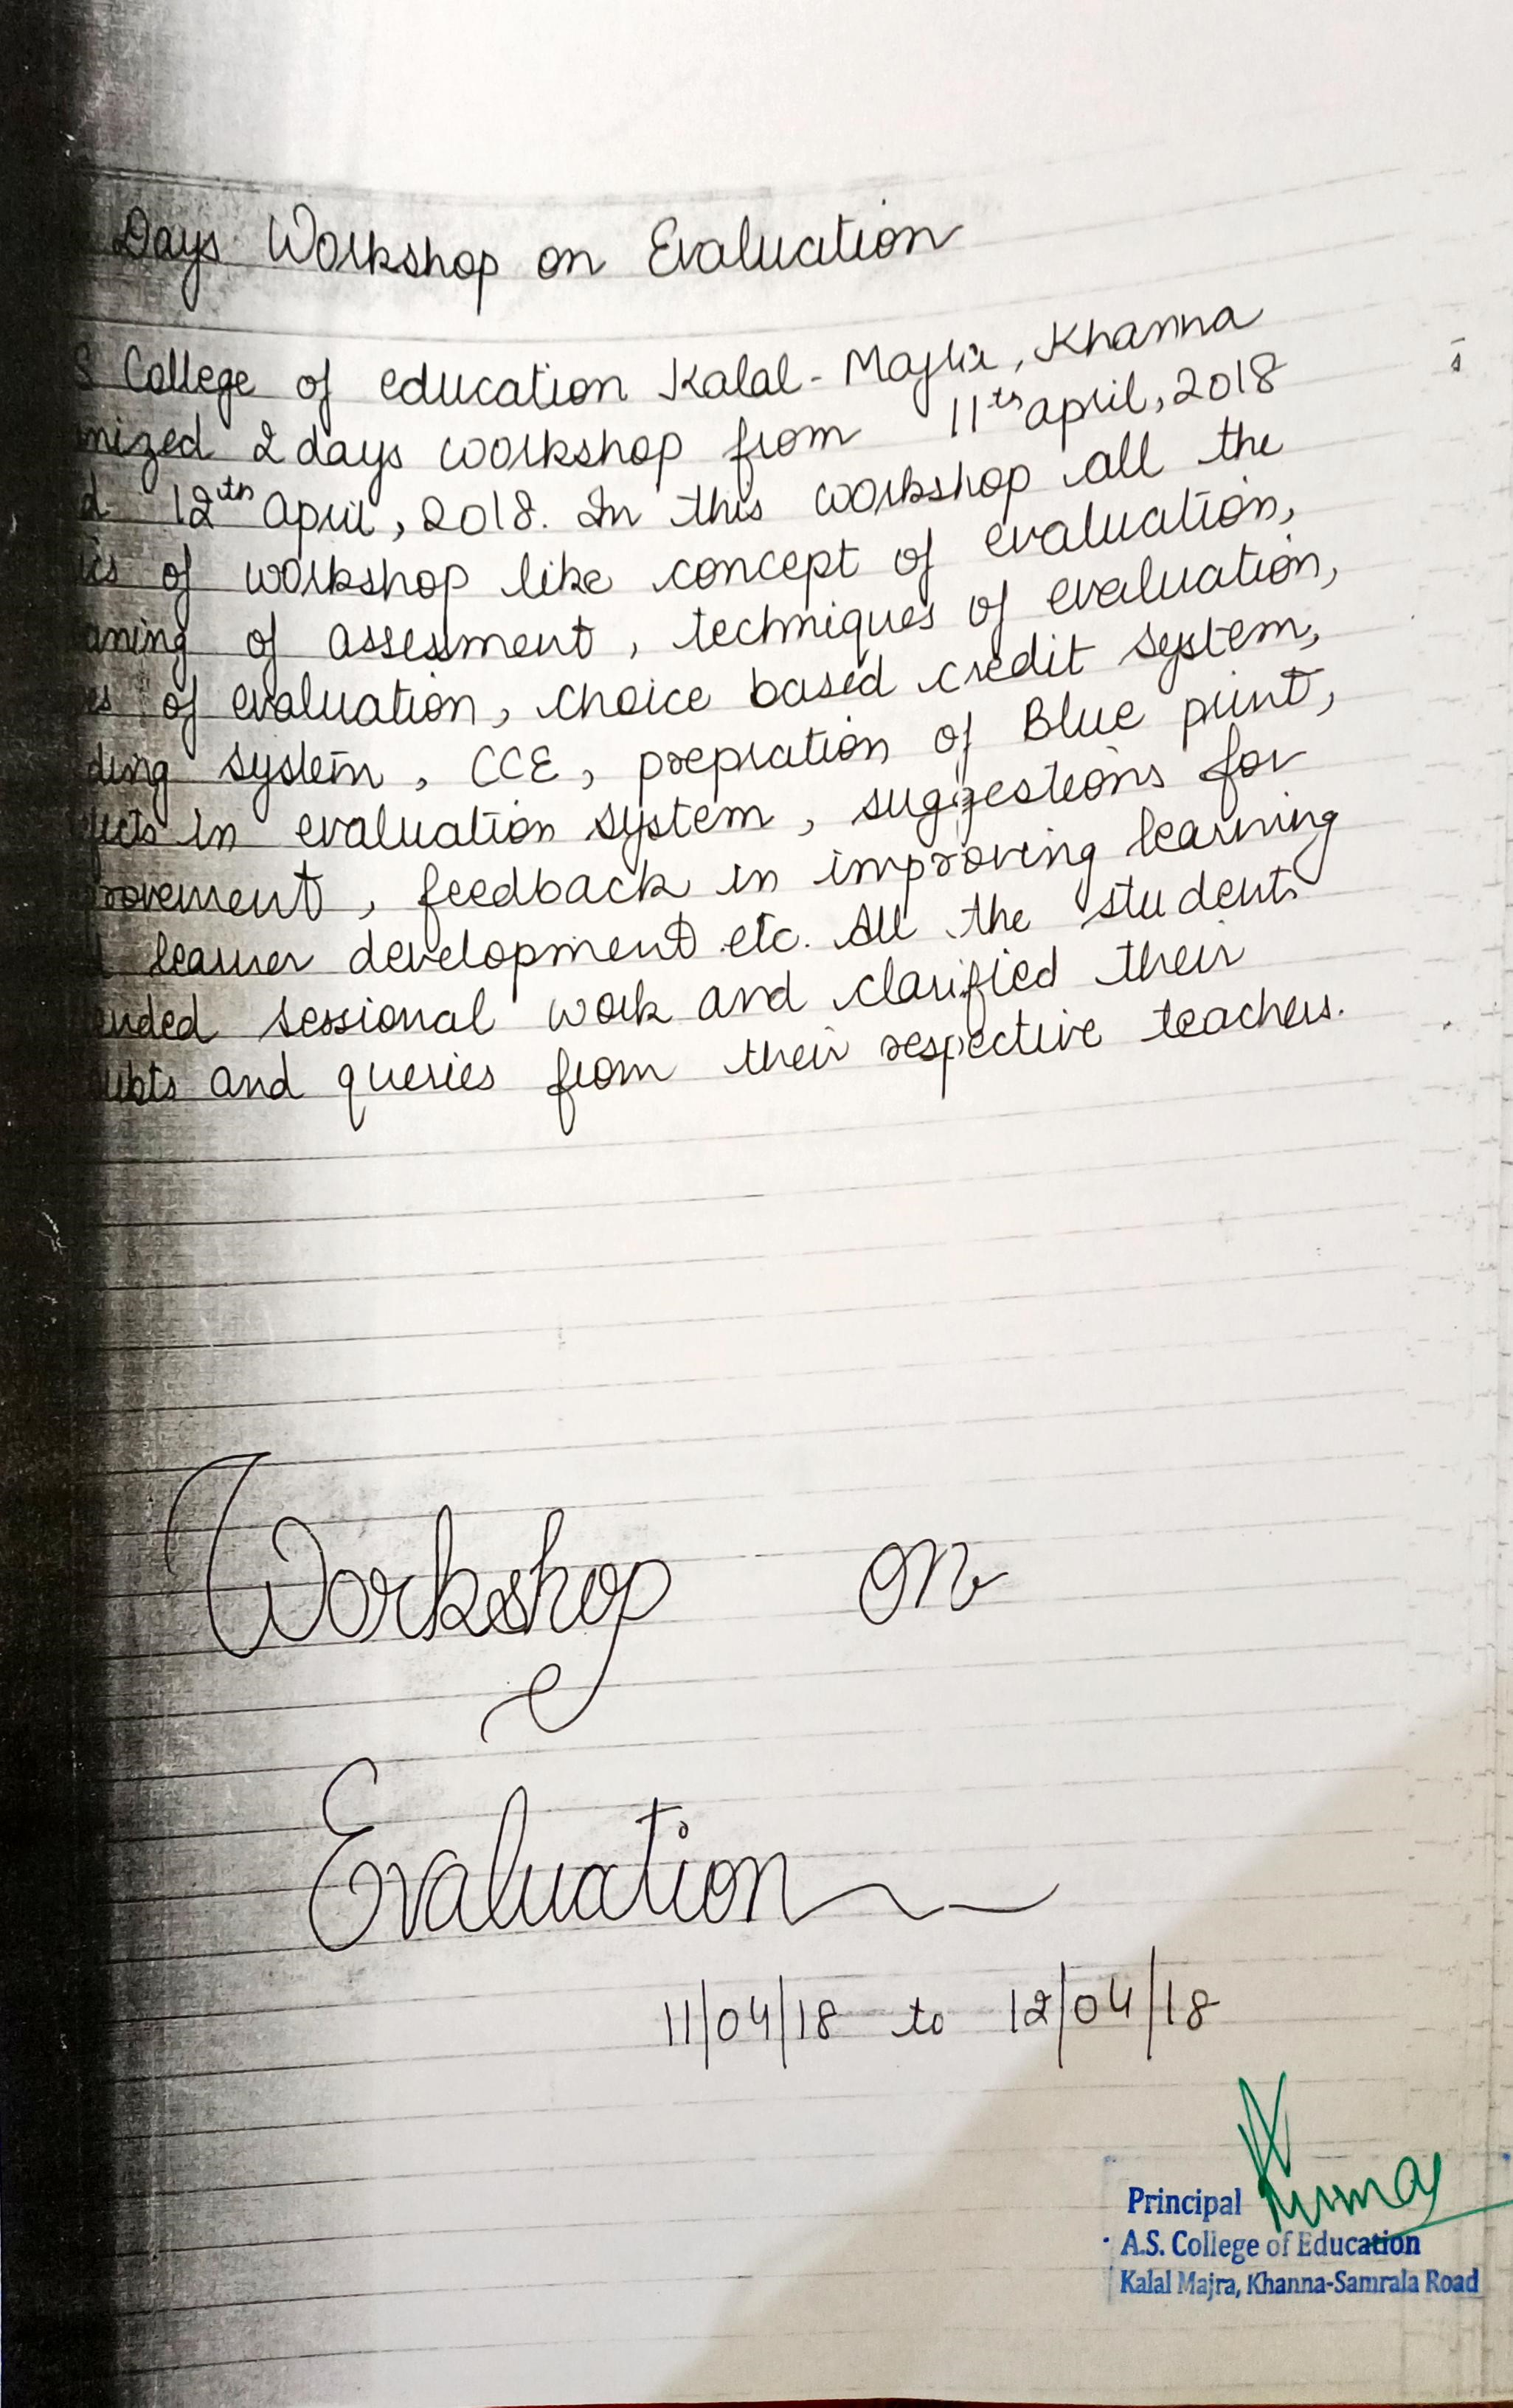 Days Workshop on Evaluation
S College of education Kalal-Majra, Khanna
nized 2 days workshop from 11th april, 2018
d 12th april, 2018. In this workshop all the
ics of workshop like concept of evaluation,
aning of assessment, techniques of evaluation,
es of evaluation, choice based credit system,
ding system, CCE, prepration of Blue print,
fects in evaluation system, suggestions for
rovement, feedback in improving learning
d learner development etc. All the students
ended sessional work and clarified their
ubts and queries from their respective teachers.
Workshop on
Evaluation
11/04/18 to 12/04/18
Kumar
Principal
A.S. College of Education
Kalal Majra, Khanna-Samrala Road